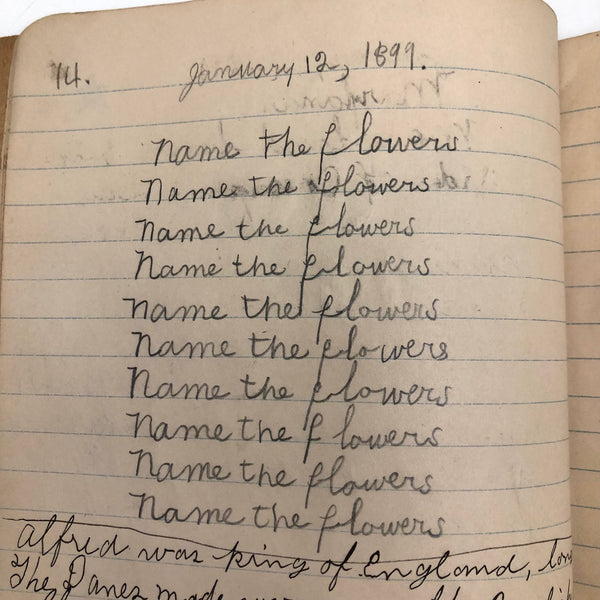 14. January 12, 1899.
Name the flowers
Name the flowers
Name the flowers
Name the flowers
Name the flowers
Name the flowers
Name the flowers
Name the flowers
Name the flowers
Name the flowers
Alfred was king of England,
The Danes made